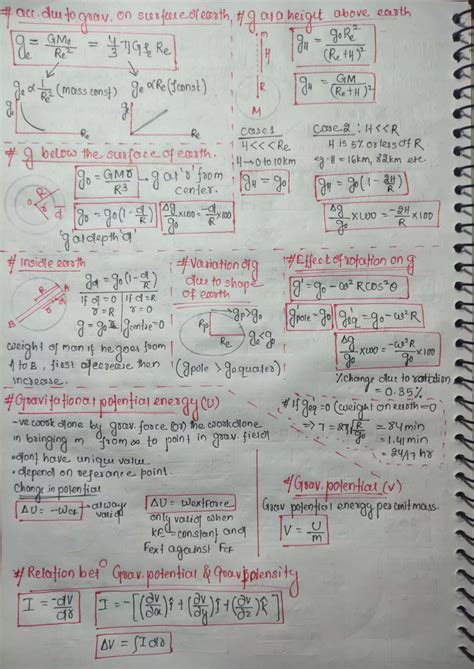 # acc. due to grav. on surface of earth,
g_e = GMe/Re² = 4/3 πGρRe
g_e ∝ 1/Re² (mass const)
g_e ∝ Re (ρ const)
g_e
Re
g
Re
# g at a height above earth
m
H
R
M
g_H = g_0Re²/(Re+H)²
g_H = GM/(Re+H)²
case 1
H<<<Re
H→0 to 10km
g_H = g_0
case 2: H<<R
H is 5% or less of R
eg. H = 16km, 32km etc
g_H = g_0(1 - 2H/R)
Δg/g_0 x100 = -2H/R x100
# g below the surface of earth.
R
d
g_r = GMr/R³ → g at 'r' from
center.
g_d = g_0(1 - d/R)
Δg/g_0 x100 = -d/R x100
'g at depth d'
# Inside earth
A
B
g_d = g_0(1 - d/R)
If d=0
r=R
If d=R
r=0
g = g_0
g centre=0
weight of man if he goes from
A to B, first decrease then
increase.
# Variation of g
due to shape
of earth
gp>g_0
Rp
Re
ge<gp
(g pole > g equator)
# Effect of rotation on g
g' = g_0 - ω²Rcos²θ
g pole = g_0
g'eq = g_0 - ω²R
Δg/g_0 x100 = -ω²R/g_0 x100
% change due to rotation
= 0.35%
# If g eq = 0 (weight on earth=0)
→ T = 2π√(R/g_0) = 84min
= 1.41min
= 24/17 hr
# Gravitational potential energy (U)
-ve work done by grav. force (or) the work done
in bringing m from ∞ to point in grav. field
• dont have unique value
• depend on referance point.
Change in potential
ΔU = -WCF → always valid
ΔU = Wext Force
only valid when
KE = constant and
Fext against FCF
# Grav. potential (v)
Grav potential energy per unit mass.
V = U/m
# Relation betⁿ Grav. potential & Grav. Intensity
I = -dv/dr
I = -[(∂v/∂x)î + (∂v/∂y)ĵ + (∂v/∂z)k̂]
ΔV = ∫I dr